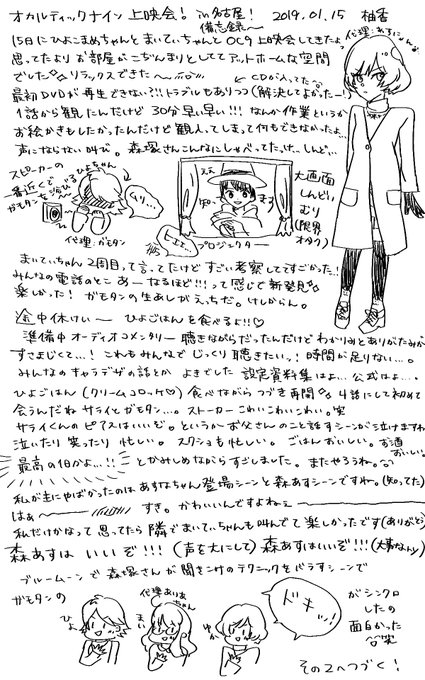 オカルティックナイン 上映会! in 名古屋! 2019.01.15 柚香
備忘録〜
15日にひよこまめちゃんとまいてぃちゃんでOC9上映会してきたよ
思ってたよりお部屋がこぢんまりとしててアットホームな空間
でした リラックスできた〜
CDが入ってた
最初DVDが再生できない?!!トラブルもありつつ(解決してよかったー!)
1話から観たんだけど 30分早い早い!!! なんか作業というか
お絵かきもしたかったんだけど観入ってしまって何もできなかったよ…
声にならない叫び。森塚さんこんなにしゃべってたっけ…しんど…
スピーカーの
番近くで
ガモタンを浴びるひよちゃん
ムリ…
代理:ガモタン
プロジェクター
大画面
しんどい
むり
(限界
オタク)
代理:あすにゃん
まいてぃちゃん2周目って言ってたけどすごい考察しててすごかった…!
みんなの電話のとこ あーなるほど!!!って感じで新発見
楽しかった! ガモタンの生あしがえっちだ。けしからん。
途中休けい〜 ひよごはんを食べるよ!!♡
準備中オーディオコメンタリー聴きながらだったんだけどわかりみとありがたみが
すさまじくて…! これもみんなでじっくり聴きたいッ! 時間が足りない…。
みんなのキャラデザの話とか よきでした 設定資料集はよ… 公式はよ…。
ひよごはん(クリームコロッケ♡)食べながらつづき再開 4話にして初めて
会うんだねサライとガモタン…。ストーカーこわいこわいこわい。笑
サライくんのピアスはいいぞ。というかお父さんのこと話すシーンが泣けますね
泣いたり 笑ったり 忙しい。 スクショも忙しい。 ごはんおいしい。お酒
おいしい。
最高の1日かよ…!! とかみしめながらすごしました。またやろうね。
私が主にやばかったのはあすなちゃん登場シーンと森あすシーンですね。(知ってた)
はぁ〜 すき。かわいいんですよねぇ
私だけかなって思ってたら隣でまいてぃちゃんも叫んでて楽しかったです(ありがとう)
森あすは いいぞ!!! (声を大にして) 森あすはいいぞ!!! (大事なんで)
ブルームーンで森塚さんが聞きこみのテクニックをバラすシーンで
ガモタンの
ひよ
代理ありあちゃん
まい
ゆか
ドキッ!!
がシンクロ
したの
面白かった
笑
その2へつづく!